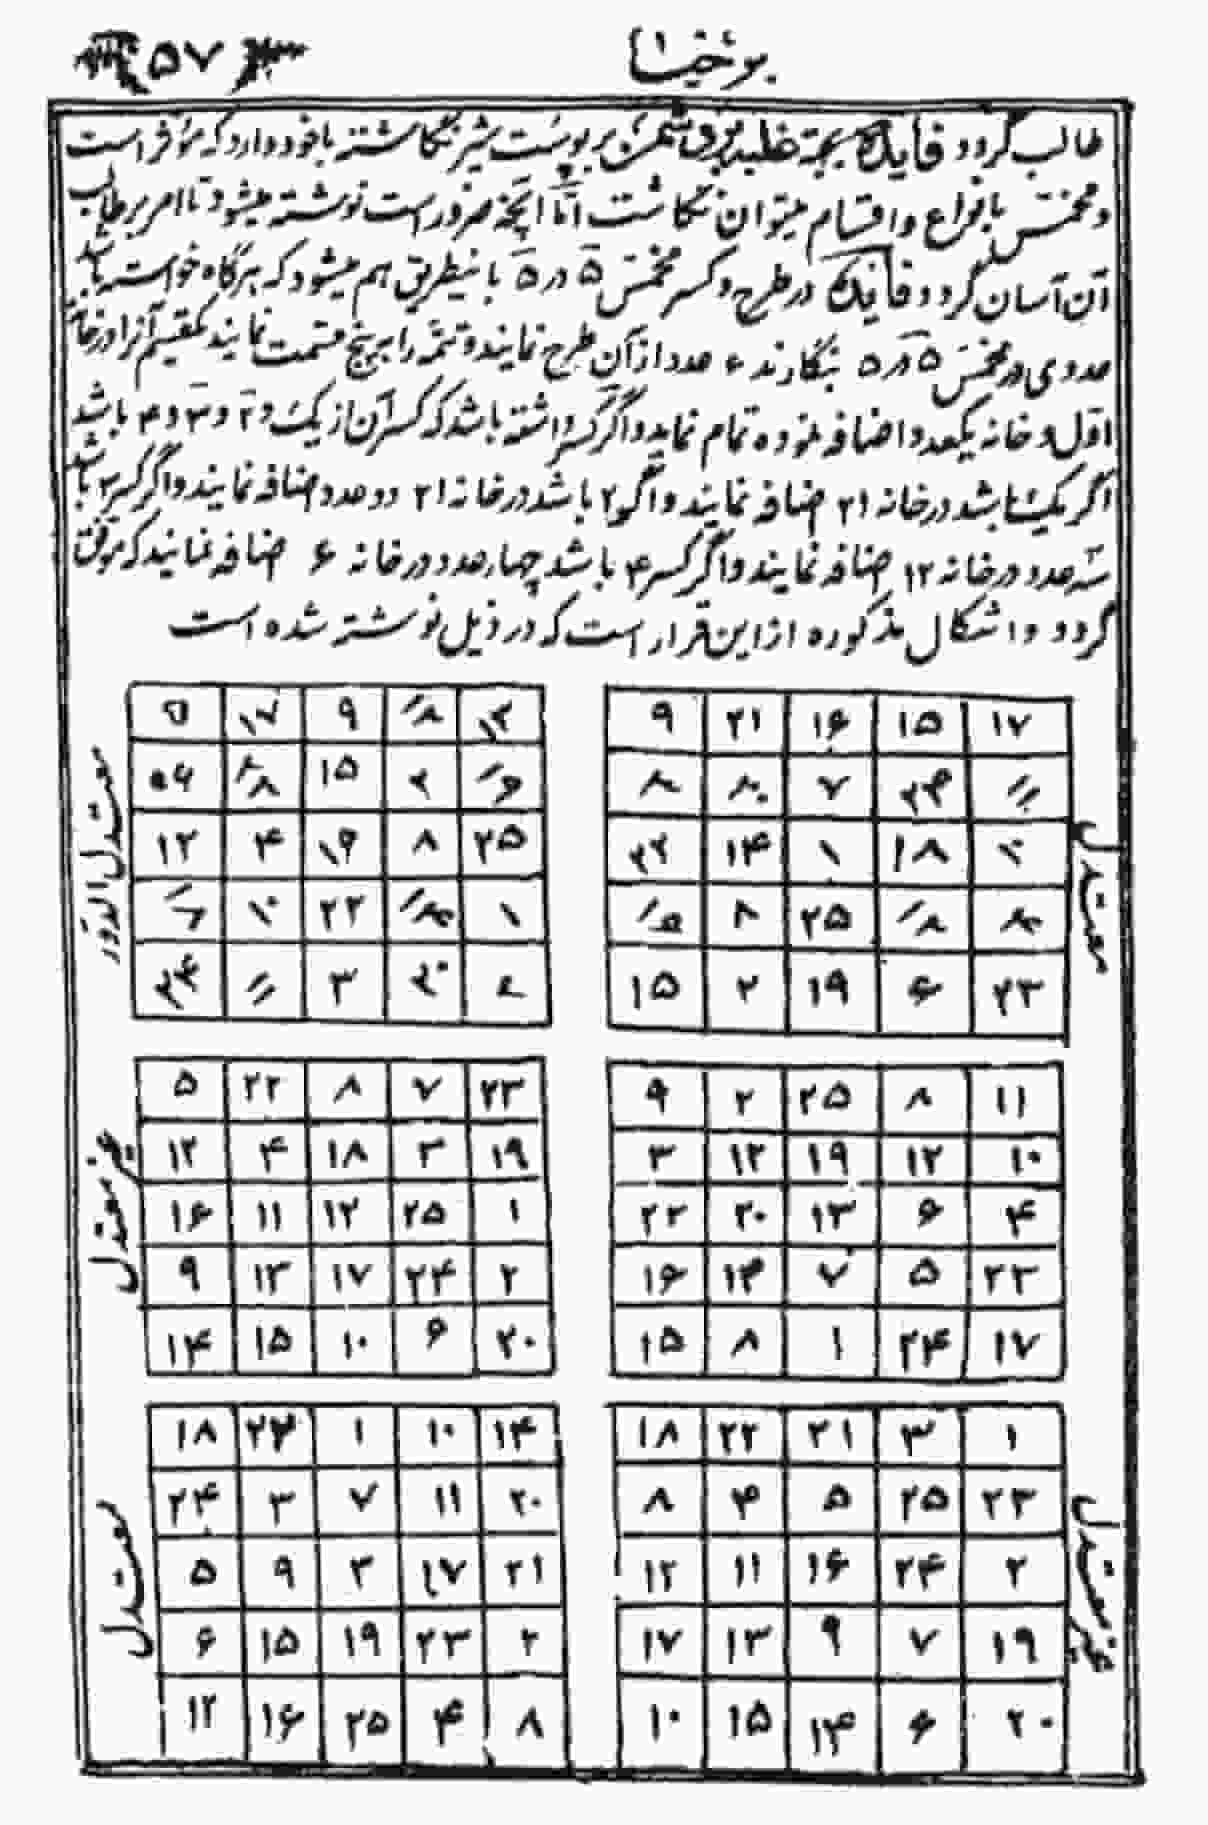 ﴿۵۷﴾ یوخنا
طالب گردد فایده بجهة غلبه بر دشمن بر پوست شیر نگاشته با خود دارد که مؤثر است
و مخمس بانواع و اقسام میتوان نگاشت اما آنچه ضرور است نوشته میشود تا امر بر طالب
آن آسان گردد فایده در طرح و کسر مخمس ۵ در ۵ باینطریق هم میشود که هرگاه خواسته باشد
عددی در مخمس ۵ در ۵ بنگارند ۶۰ عدد از آن طرح نمایند و تتمه را بر پنج قسمت نمایند یکقسیم آنرا در خانه
اول و خانه یکعدد اضافه نموده تمام نماید و اگر کسر داشته باشد که کسر آن از یک و ۲ و ۳ و ۴ باشد
اگر یک باشد در خانه ۲۱ اضافه نمایند و اگر ۲ باشد در خانه ۲۱ دو عدد اضافه نمایند و اگر کسر ۳ باشد
سه عدد در خانه ۱۲ اضافه نمایند و اگر کسر ۴ باشد چهار عدد در خانه ۶ اضافه نمایند که موافق
گردد و اشکال مذکوره از این قرار است که در ذیل نوشته شده است
معتدل
۹ ۲۱ ۱۶ ۱۵ ۱۷
۷
۱۴ ۱ ۱۸
۸ ۲۵
۱۵ ۲ ۱۹ ۶ ۲۳
معتدل الدور
۵ ۱۷ ۹
۱۵ ۲
۱۲ ۴ ۸ ۲۵
۱۰ ۲۲ ۱
۲۴ ۱۱ ۳ ۲۰
۹ ۲ ۲۵ ۸ ۱۱
۳ ۱۲ ۱۹ ۱۲ ۱۰
۲۲ ۲۰ ۱۳ ۶ ۴
۱۶ ۱۴ ۷ ۵ ۲۳
۱۵ ۸ ۱ ۲۴ ۱۷
غیر معتدل
۵ ۲۲ ۸ ۷ ۲۳
۱۲ ۴ ۱۸ ۳ ۱۹
۱۶ ۱۱ ۱۲ ۲۵ ۱
۹ ۱۳ ۱۷ ۲۴ ۲
۱۴ ۱۵ ۱۰ ۶ ۲۰
غیر معتدل
۱۸ ۲۲ ۲۱ ۳ ۱
۸ ۴ ۵ ۲۵ ۲۳
۱۲ ۱۱ ۱۶ ۲۴ ۲
۱۷ ۱۳ ۹ ۷ ۱۹
۱۰ ۱۵ ۱۴ ۶ ۲۰
معتدل
۱۸ ۲۲ ۱ ۱۰ ۱۴
۲۴ ۳ ۷ ۱۱ ۲۰
۵ ۹ ۳ ۱۷ ۲۱
۶ ۱۵ ۱۹ ۲۳ ۲
۱۲ ۱۶ ۲۵ ۴ ۸